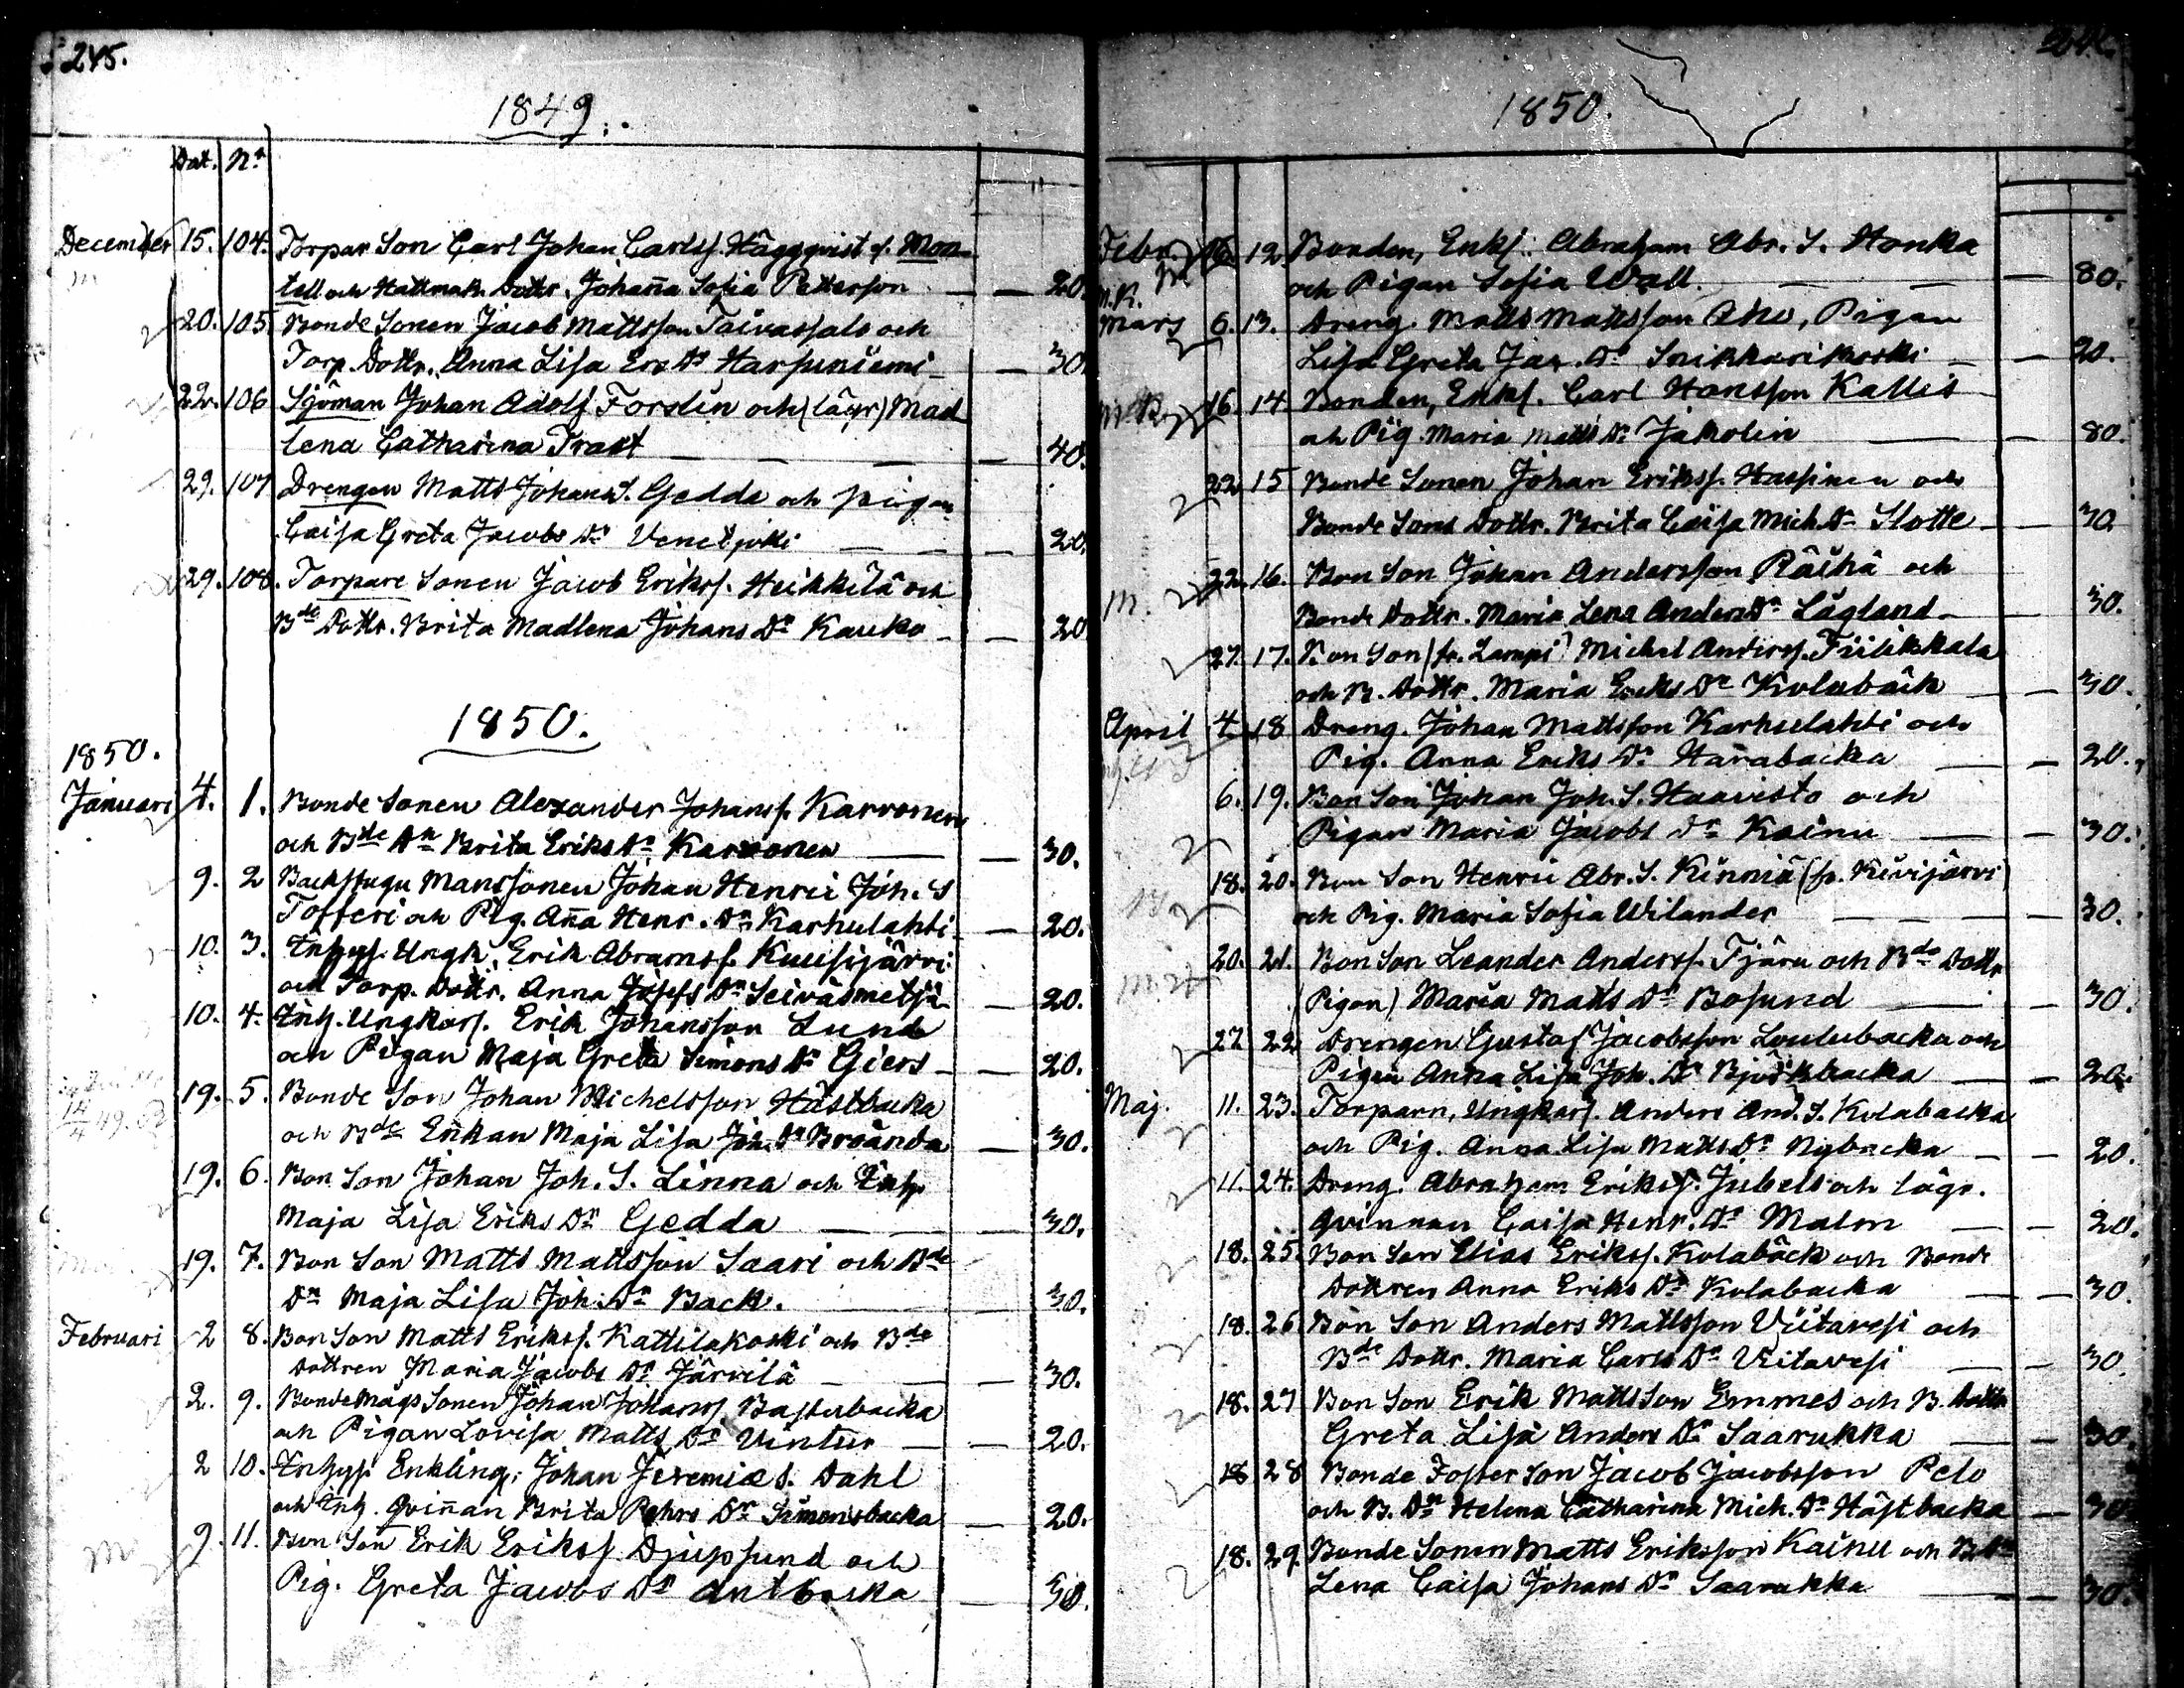 245.
1849.
Dat. No
December 15. 104. Torpar Son Carl Johan Carlss. Häggqvist f. Mon
tell och Hattmak. Dottr. Johanna Sofia Petterson — — 20.
20. 105. Bonde Sonen Jacob Mattsson Taivassalo och
Torp. Dottr. Anna Lisa Ers Dr Harjuniemi — — 30
22. 106 Sjöman Johan Adolf Forslin och (lägr) Mad
lena Catharina Trast — — — — 40.
29. 107 Drengen Matts Johans S. Gedda och pigan
Caisa Greta Jacobs Dr Venetjoki — — — 20.
29. 108. Torpare Sonen Jacob Erikss. Heikkilä och
Bde Dottr. Brita Madlena Johans Dr Kauko — — 20
1850.
1850.
Januari 4. 1. Bonde Sonen Alexander Johanss. Karvonen
och Bde Dr Brita Eriks Dr Karvonen — — 30.
9. 2 Backstugu Manssonen Johan Henric Joh. S
Tofferi och Pig. Anna Henr. Dr Karhulahti — — 20.
10. 3. Inhys. Ungk. Erik Abramss. Kuusijärvi
och Torp. Dottr. Anna Josefs Dr Seiväsmetsä — 20.
10. 4. Inh. Ungkarl. Erik Johansson Lund
och Pigan Maja Greta Simons Dr Giers — — 20.
14/4 49.
19. 5. Bonde Son Johan Michelsson Hästbacka
och Bde Enkan Maja Lisa Joh. Dr Broända — 30.
19. 6. Bon Son Johan Joh. S. Linna och Inh.
Maja Lisa Eriks Dr Gedda — — — 30.
19. 7. Bon Son Matts Mattsson Saari och Bde
Dr Maja Lisa Joh. Dr Back. — — 30.
Februari 2 8. Bon Son Matts Erikss. Kattilakoski och Bde
Dottren Maria Jacobs Dr Järvilä — — 30.
2. 9. Bonde Mågs Sonen Johan Johanss Bastubacka
och Pigan Lovisa Matts Dr Vintur — — 20.
2 10. Inhys. Enkling. Johan Jeremiæ S. Dahl
och Inh. Qvinnan Brita Pehrs Dr Simonsbacka — 20.
M 9. 11. Bon Son Erik Erikss Djupsund och
Pig. Greta Jacobs Dr Antbacka — 30.
1850.
Febr. 16. 12. Bonden, Enkl. Abraham Abr. S. Honka
och Pigan Sofia Wall. — — — 80.
Mars 6. 13. Dreng. Matts Mattsson Aho, Pigan
Lisa Greta Jac. Dr Snikkarikoski — — 20.
16. 14. Bonden, Enkl. Carl Hansson Kallis
och Pig. Maria Matts Dr Jakolin — — 80.
22 15 Bonde Sonen Johan Erikss. Haapinen och
Bonde Sons Dottr. Brita Caisa Mich. Dr Slotte — — 30.
M. 22. 16. Bon Son Johan Andersson Räihä och
Bonde Dottr. Maria Lena Anders Dr Lågland — 30.
27. 17. Bon Son (fr. Lampi) Michel Anderss. Fiilikkala
och B. Dottr. Maria Eriks Dr Kolabäck — — 30.
April 4. 18 Dreng. Johan Mattsson Karhulahti och
Pig. Anna Eriks Dr Harabacka — — 20.
6. 19. Bon Son Johan Joh. S. Haavisto och
Pigan Maria Jacobs Dr Kainu — — 30.
18. 20. Bon Son Henric Abr. S. Kinniä (fr. Kivijärvi)
och Pig. Maria Sofia Wilander — — — 30.
20. 21. Bon Son Leander Anderss. Tjäru och Bde Dottr
(Pigan) Maria Matts Dr Bosund — — 30.
27 22 Drengen Gustaf Jacobsson Loulubacka och
Pigan Anna Lisa Joh. Dr Björkbacka — — 20.
Maj. 11. 23. Torparn, Ungkarl. Anders And. S. Kolabacka
och Pig. Anna Lisa Matts Dr Nybacka — — 20.
11. 24. Dreng. Abraham Erikss. Jubell och lägr.
Qvinnan Caisa Henr. Dr Malm — — 20.
18. 25. Bon Son Elias Erikss. Kolabäck och Bonde
Dottren Anna Eriks Dr Kolabacka — — 30.
18. 26 Bon Son Anders Mattsson Viitavesi och
Bde Dottr. Maria Carls Dr Viitavesi — — 30.
18. 27 Bon Son Erik Mattsson Emmes och B. Dottr
Greta Lisa Anders Dr Saarukka — — 30.
18 28 Bonde Foster Son Jacob Jacobsson Pelo
och B. Dr Helena Catharina Mich. Dr Hästbacka — 30
18. 29. Bonde Sonen Matts Eriksson Kainu och B. Dr
Lena Caisa Johans Dr Saarukka — — 30.